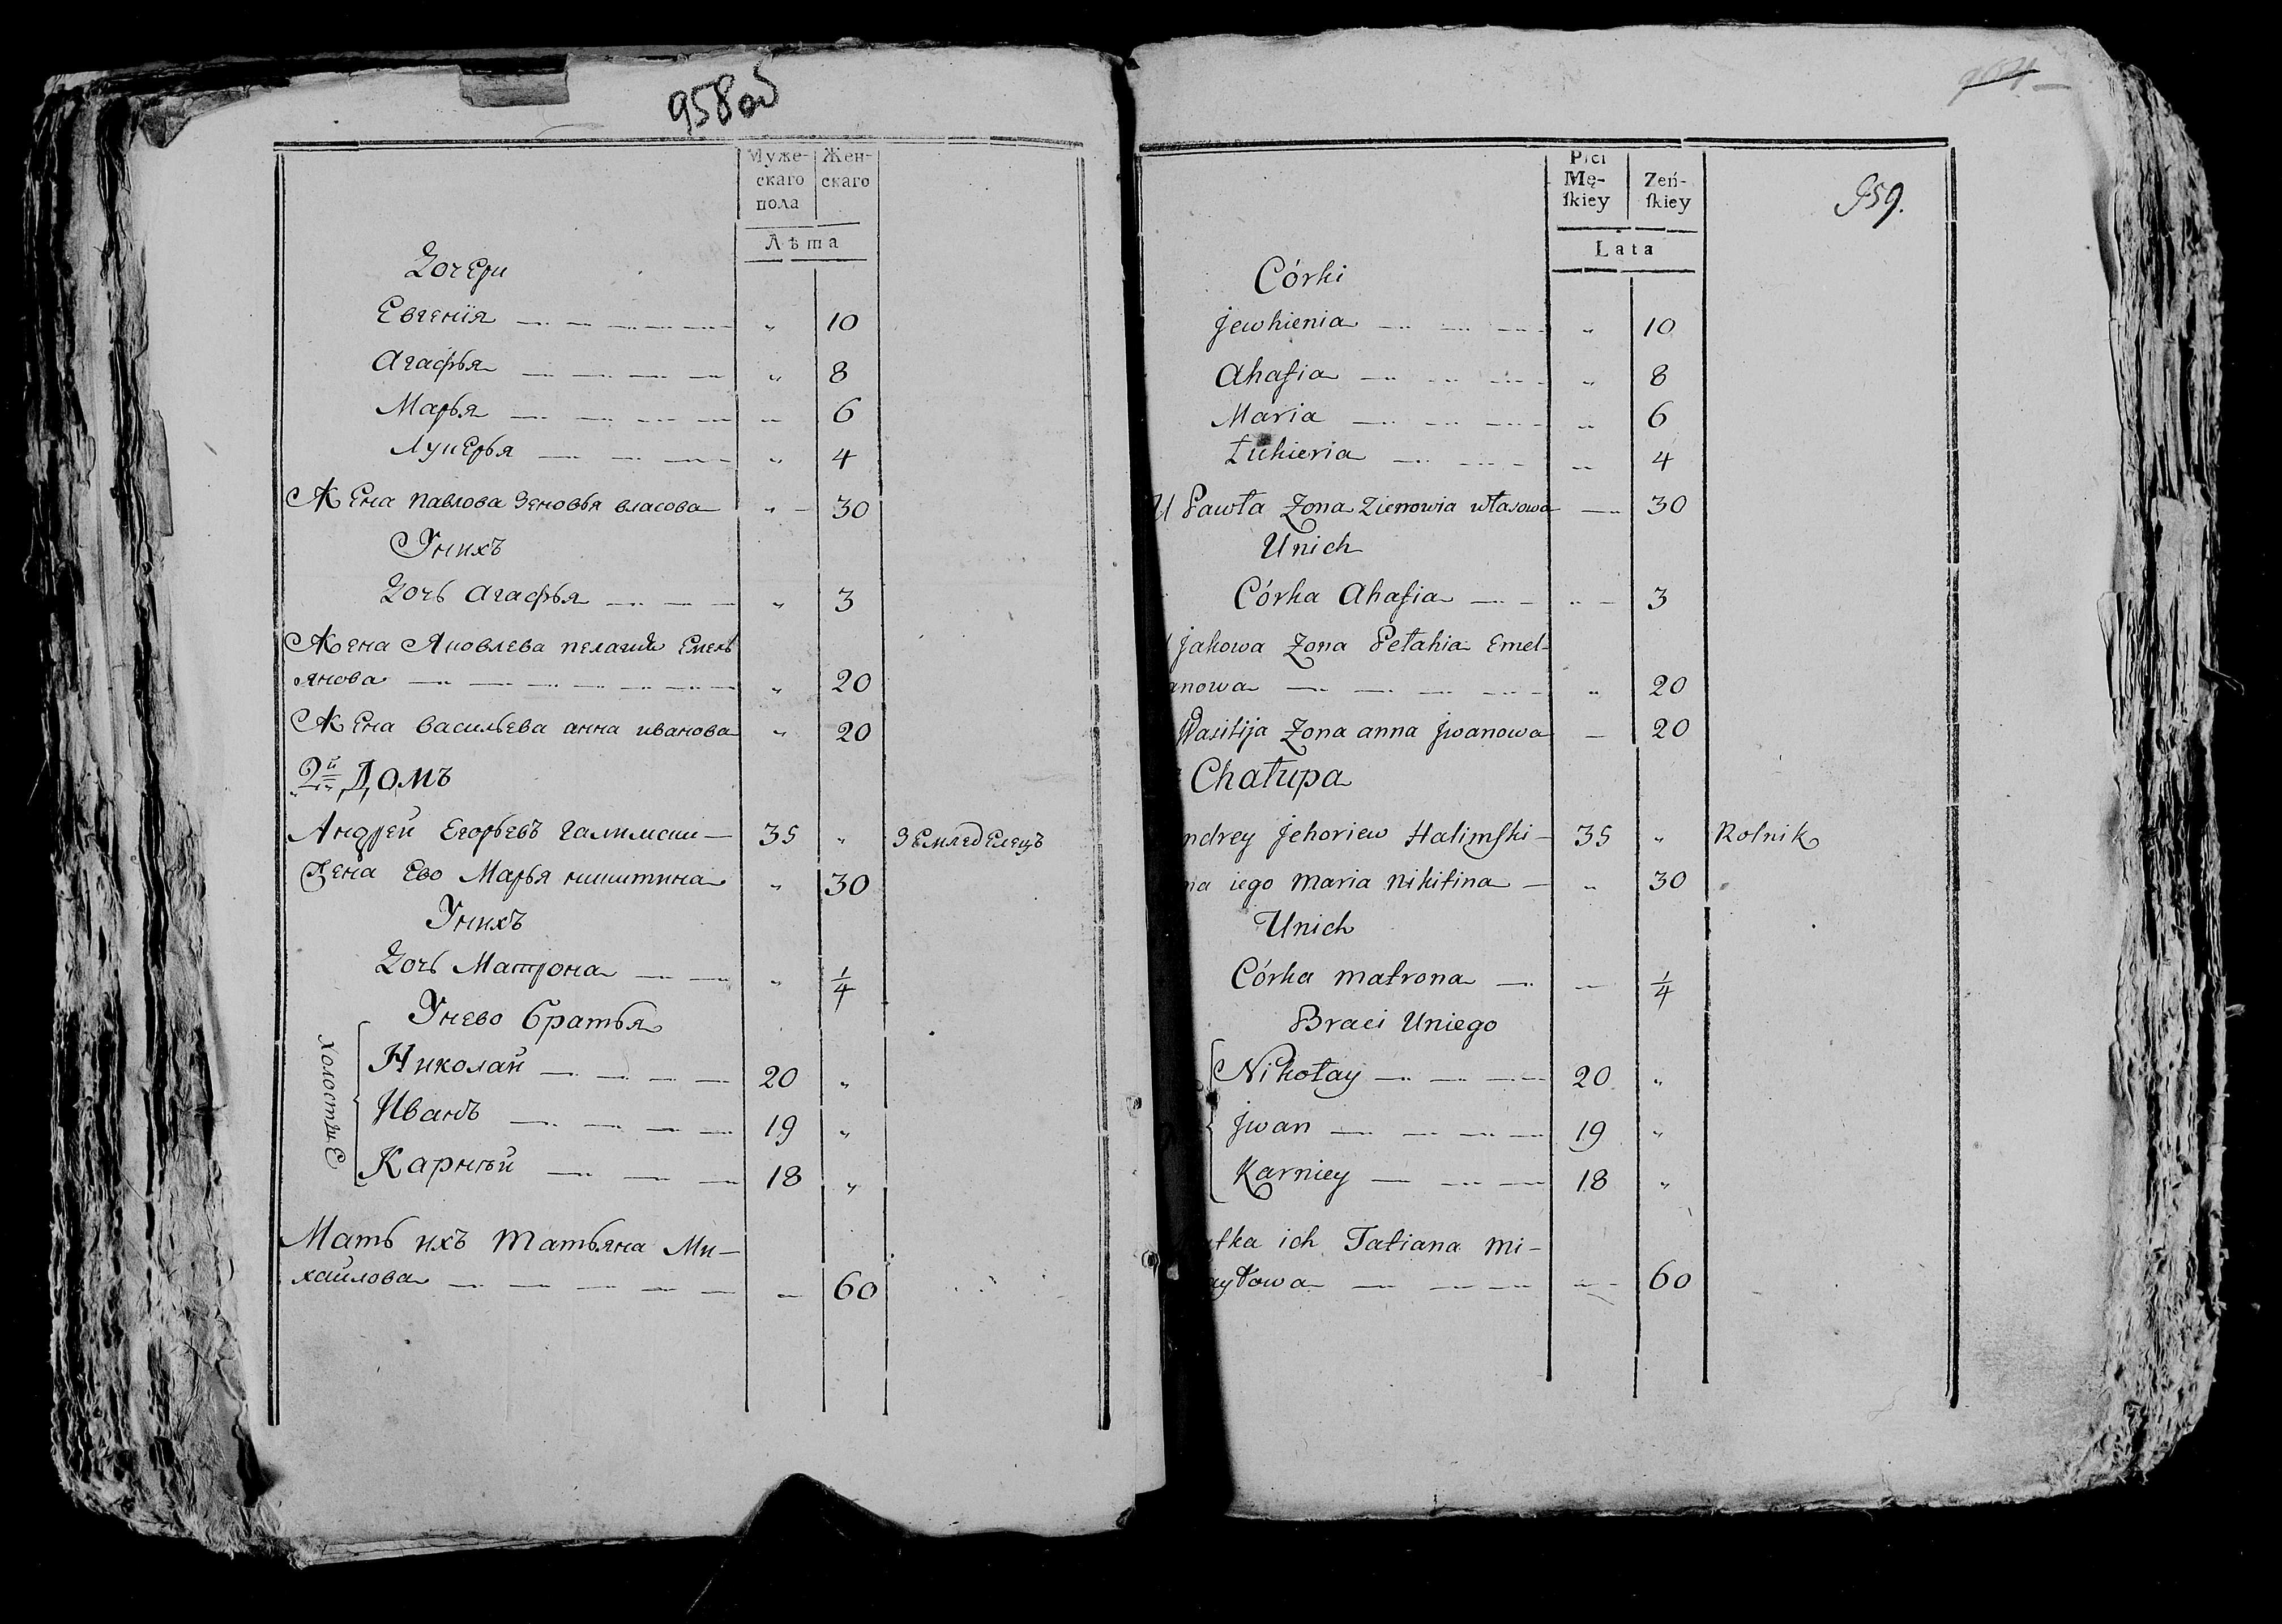 958об
Муже- Жен-
скаго скаго
пола
Лѣта
Дочери
Евгенія 〃 10
Агафья 〃 8
Марья 〃 6
Лукерья 〃 4
Жена Павлова Зеновья власова 〃 30
Унихъ
Дочь Агафья 〃 3
Жена Яковлева пелагия Емель
янова 〃 20
Жена васильева анна иванова 〃 20
2й Домъ
Андрей Егорьевъ галимски 35 〃 Землед Елецъ
Жена Ево Марья никитина 〃 30
Унихъ
Дочь Матрона 〃 1/4
Унево братья
холостыЕ
Николай 20 〃
Иванъ 19 〃
Карнѣй 18 〃
Мать ихъ татьяна Ми-
хаилова 60
959.
Płci
Mę- Zeń-
ſkiey ſkiey
Lata
Córki
Jewhienia 〃 10
Ahafia 〃 8
Maria 〃 6
Łukieria 4
U Pawła Zona Zienowia własowa 30
Unich
Córka Ahafia 3
Jakowa Zona Pełahia Emel-
anowa 〃 20
Wasilija Zona anna Jwanowa 20
Chałupa
ndrey Jehoriew Halimſki 35 〃 Rolnik
na iego Maria Nikitina 〃 30
Unich
Córka matrona 1/4
Braci Uniego
Nikołay 20 〃
Jwan 19 〃
Karniey 18 〃
tka ich Tatiana Mi-
ayłowa 60